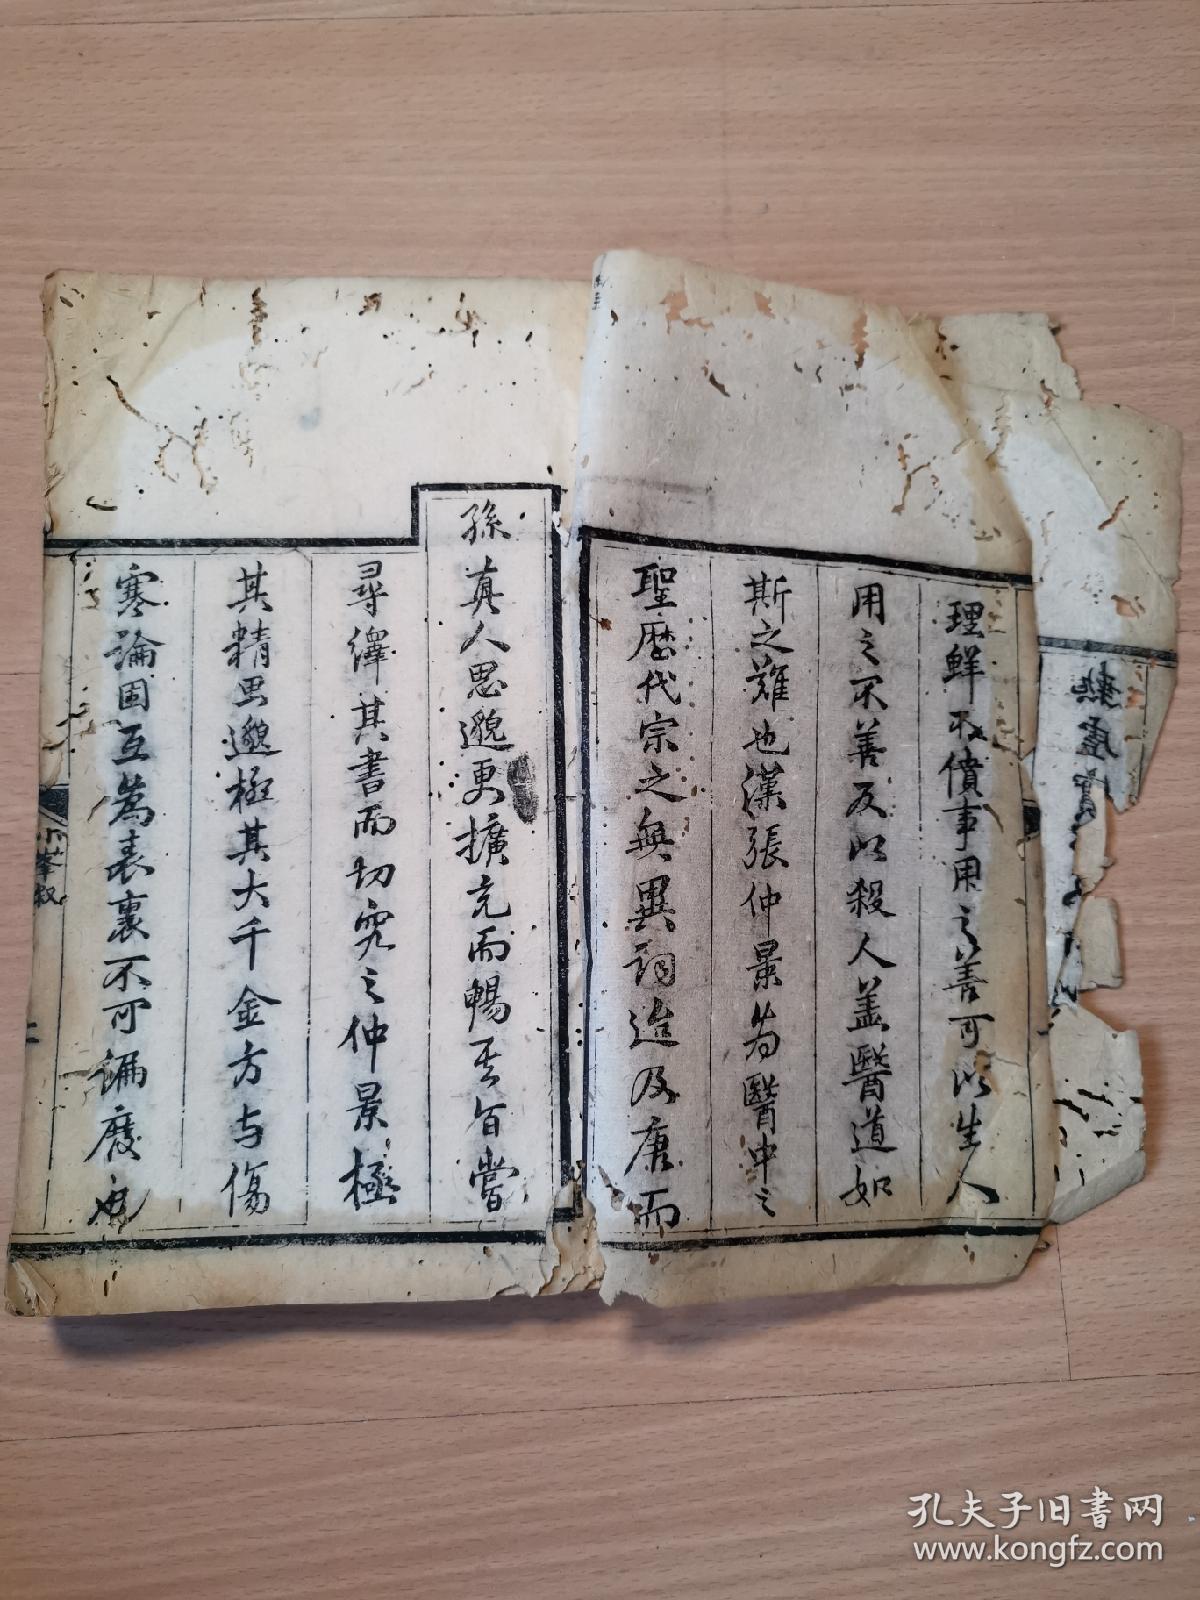 熱虛實
理鮮不僨事用之善可以生人
用之不善反以殺人蓋醫道如
斯之難也漢張仲景為醫中之
聖歷代宗之無異詞迨及唐而
孫真人思邈更擴充而暢其旨嘗
尋繹其書而切究之仲景極
其精思邈極其大千金方与傷
寒論固互為表裏不可偏廢也
孔夫子旧书网
www.kongfz.com